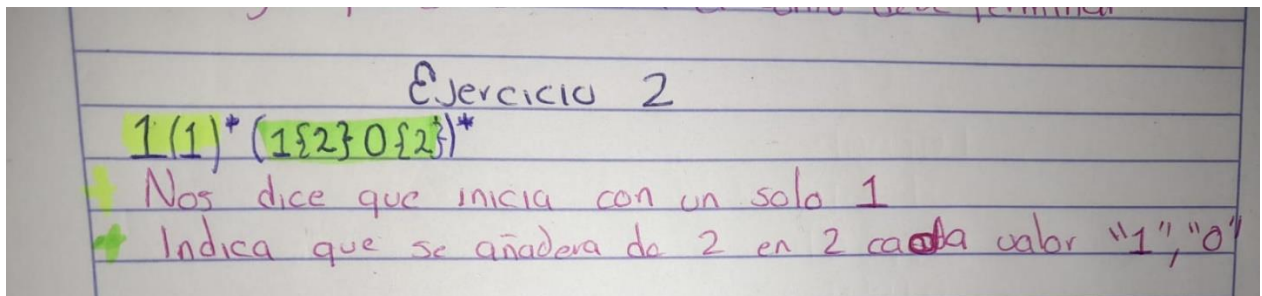 Ejercicio 2
1(1)* (1{2}0{2})*
Nos dice que inicia con un solo 1
Indica que se añadera de 2 en 2 cada valor "1", "0"